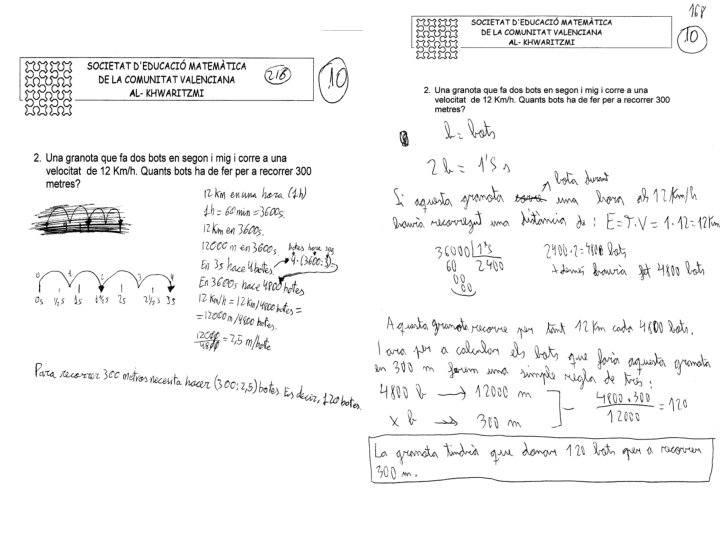 SOCIETAT D'EDUCACIÓ MATEMÀTICA
DE LA COMUNITAT VALENCIANA
AL- KHWARITZMI
21B
10
2. Una granota que fa dos bots en segon i mig i corre a una
velocitat de 12 Km/h. Quants bots ha de fer per a recorrer 300
metres?
12 Km en una hora (1h)
1h = 60 min = 3600s.
12 Km en 3600s.
12000 m en 3600s.
botes hora seg
4·(3600:3)=
En 3s hace 4 botes
En 3600s hace 4800 botes
12 Km/h = 12 Km/4800 botes =
= 12000m/4800 botes.
12000/4800 = 2,5 m/bote
0 1 2 3 4
0s 1/2s 1s 1 1/2s 2s 2 1/2s 3s
Para recorrer 300 metros necesita hacer (300:2,5) botes. Es decir, 120 botes.
168
SOCIETAT D'EDUCACIÓ MATEMÀTICA
DE LA COMUNITAT VALENCIANA
AL- KHWARITZMI
10
2. Una granota que fa dos bots en segon i mig i corre a una
velocitat de 12 Km/h. Quants bots ha de fer per a recorrer 300
metres?
b = bots
2b = 1'5 s
bota durant
Si aquesta granota una hora als 12 Km/h
hauria recorregut una distància de: E=T.V = 1·12=12Km
36000 1'5
60 2400
00
00
2400·2=4800 bots
també hauria fet 4800 bots
Aquesta granota recorre per tant 12 Km cada 4800 bots.
I ara per a calcular els bots que faria aquesta granota
en 300 m farem una simple regla de tres:
4800 b → 12000 m
x b → 300 m
4800·300/12000 = 120
La granota tindria que donar 120 bots per a recorrer
300 m.